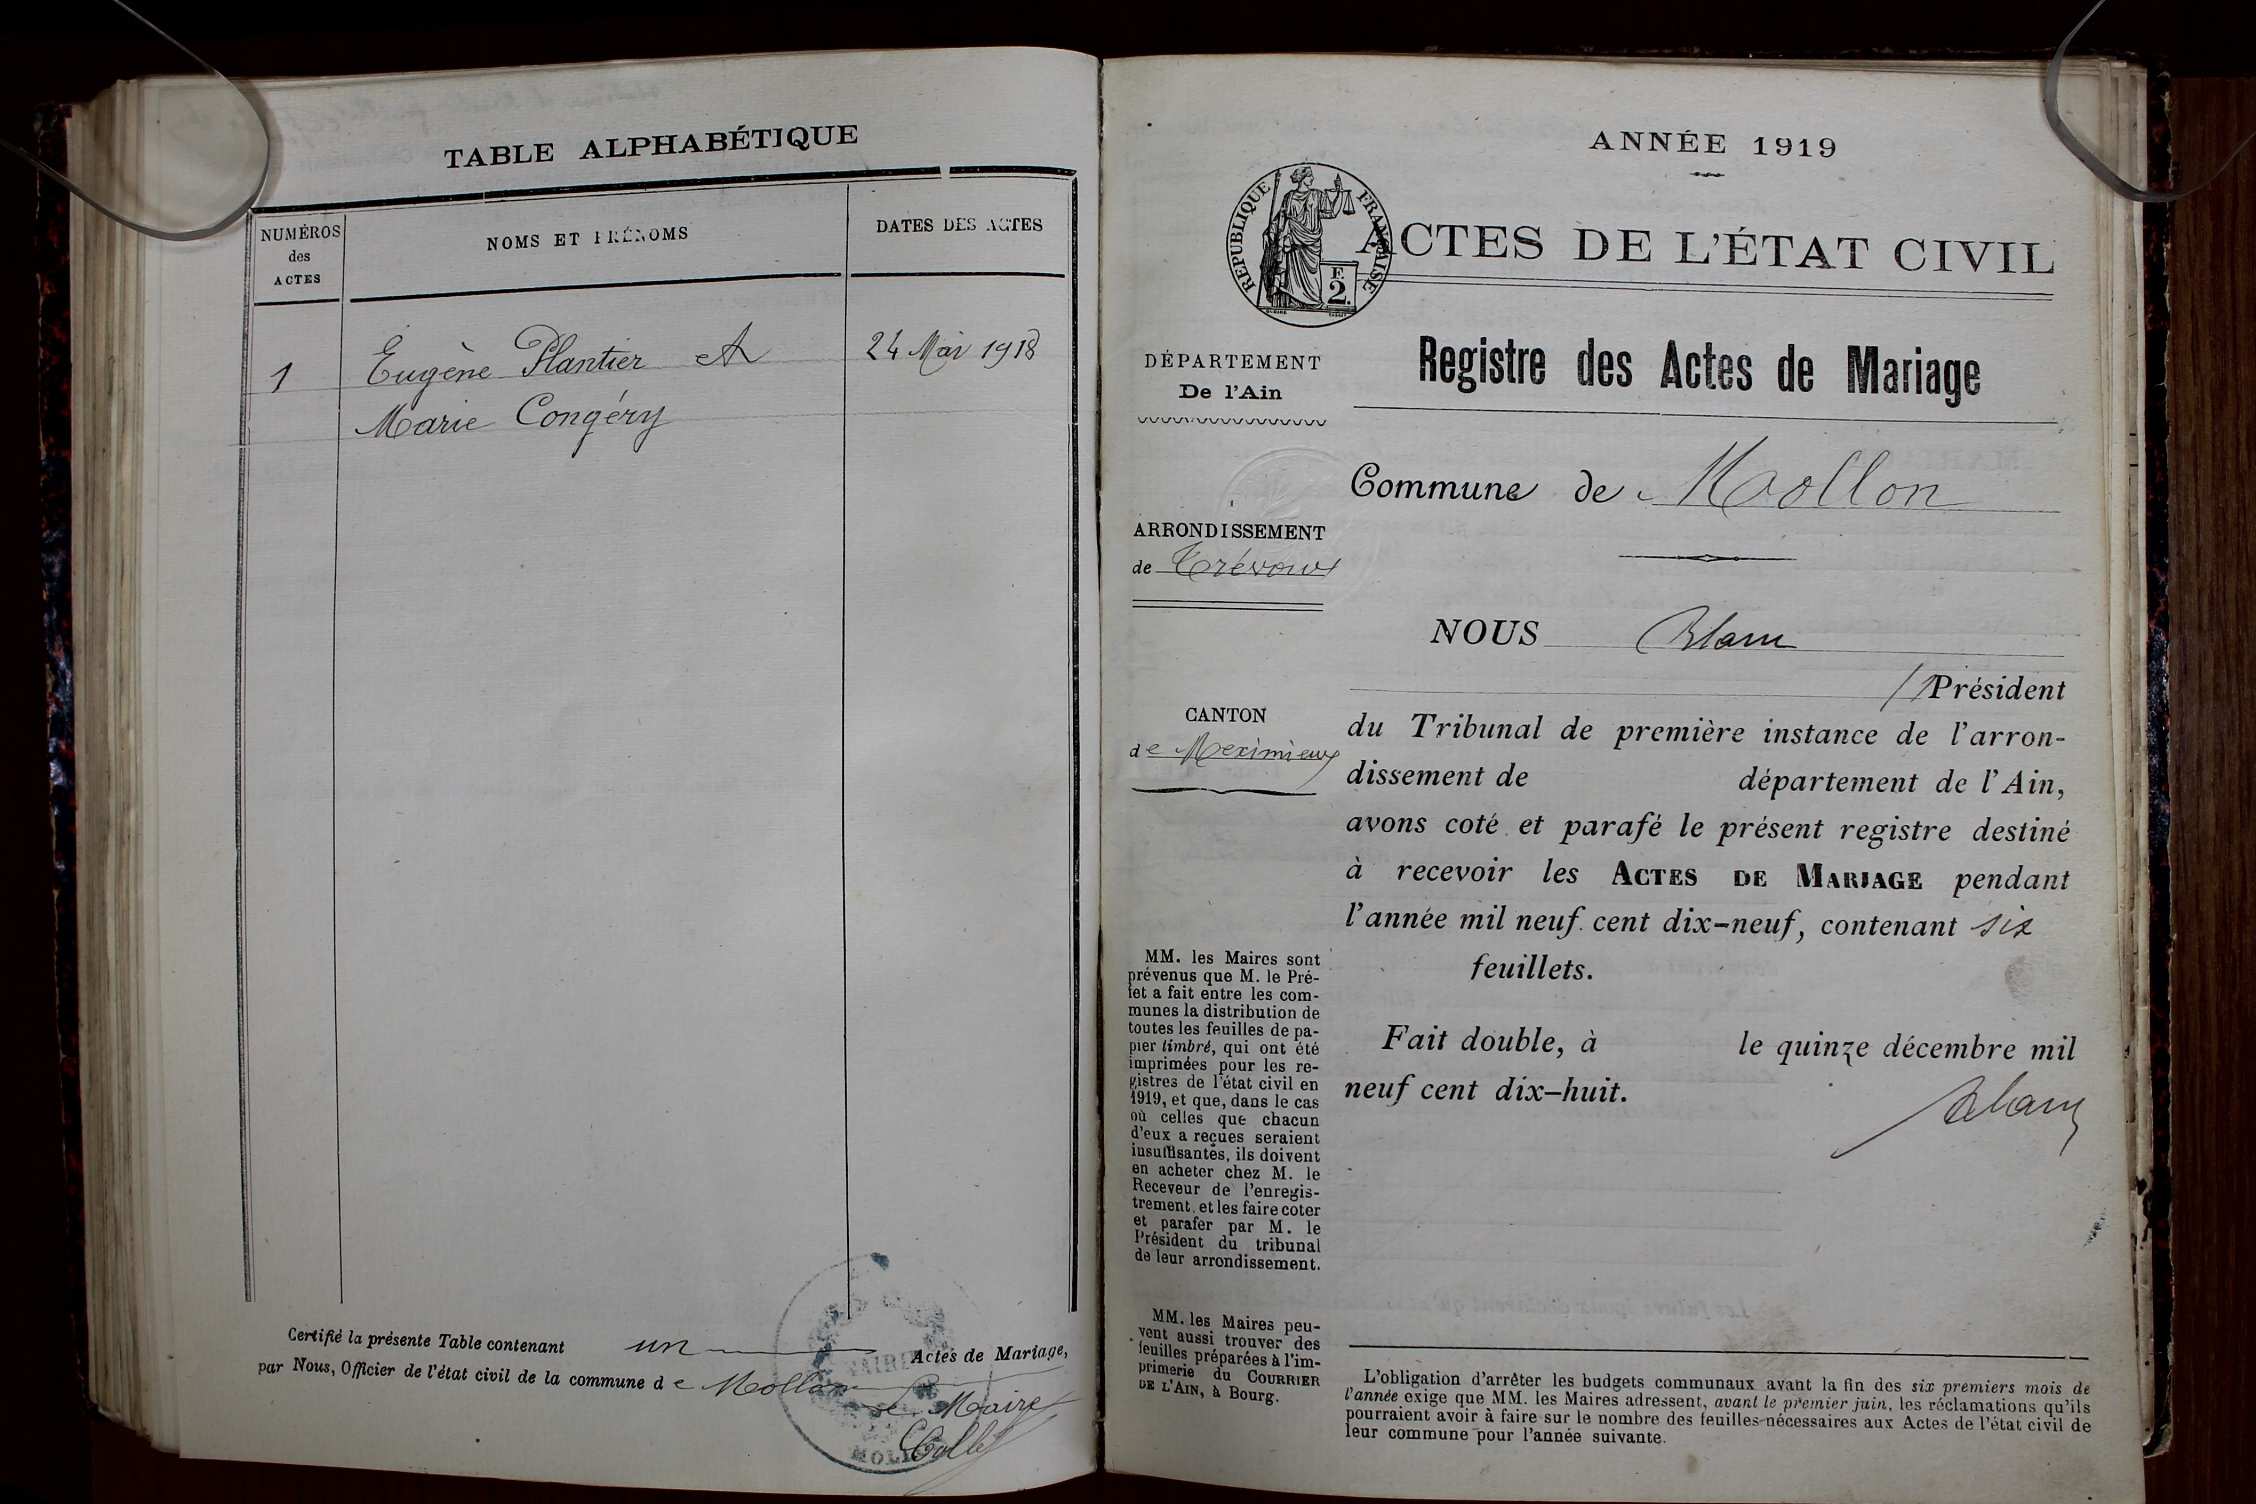 TABLE ALPHABÉTIQUE
NUMÉROS
des
ACTES
NOMS ET PRÉNOMS
DATES DES ACTES
1
Eugène Plantier et
24 Mai 1918
Marie Congéry
Certifié la présente Table contenant un Actes de Mariage,
par Nous, Officier de l'état civil de la commune de Mollon
Le Maire
MAIRIE
MOLLON
ANNÉE 1919
RÉPUBLIQUE FRANÇAISE
F.
2.
ACTES DE L'ÉTAT CIVIL
DÉPARTEMENT
De l'Ain
Registre des Actes de Mariage
Commune de Mollon
ARRONDISSEMENT
de Trévoux
NOUS
Président
CANTON
de Meximieux
du Tribunal de première instance de l'arron-
dissement de département de l'Ain,
avons coté et parafé le présent registre destiné
à recevoir les ACTES DE MARIAGE pendant
l'année mil neuf cent dix-neuf, contenant six
feuillets.
Fait double, à le quinze décembre mil
neuf cent dix-huit.
MM. les Maires sont
prévenus que M. le Pré-
fet a fait entre les com-
munes la distribution de
toutes les feuilles de pa-
pier timbré, qui ont été
imprimées pour les re-
gistres de l'état civil en
1919, et que, dans le cas
où celles que chacun
d'eux a reçues seraient
insuffisantes, ils doivent
en acheter chez M. le
Receveur de l'enregis-
trement, et les faire coter
et parafer par M. le
Président du tribunal
de leur arrondissement.
MM. les Maires peu-
vent aussi trouver des
feuilles préparées à l'im-
primerie du COURRIER
DE L'AIN, à Bourg.
L'obligation d'arrêter les budgets communaux avant la fin des six premiers mois de
l'année exige que MM. les Maires adressent, avant le premier juin, les réclamations qu'ils
pourraient avoir à faire sur le nombre des feuilles nécessaires aux Actes de l'état civil de
leur commune pour l'année suivante.